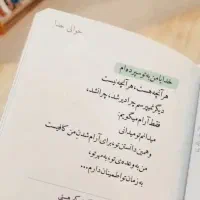 خدایا من به تو سپرده‌ام
هر آنچه هست، هر آنچه نیست
دیگر نمیپرسم چرا دیر شد، چرا نشد،
فقط آرام میگویم:
میدانم تو میدانی
و همین دانستن تو، برای آرام شدن من کافیست
من به وعده‌ی تو، به مهر تو،
به زمان تو اطمینان دارم...